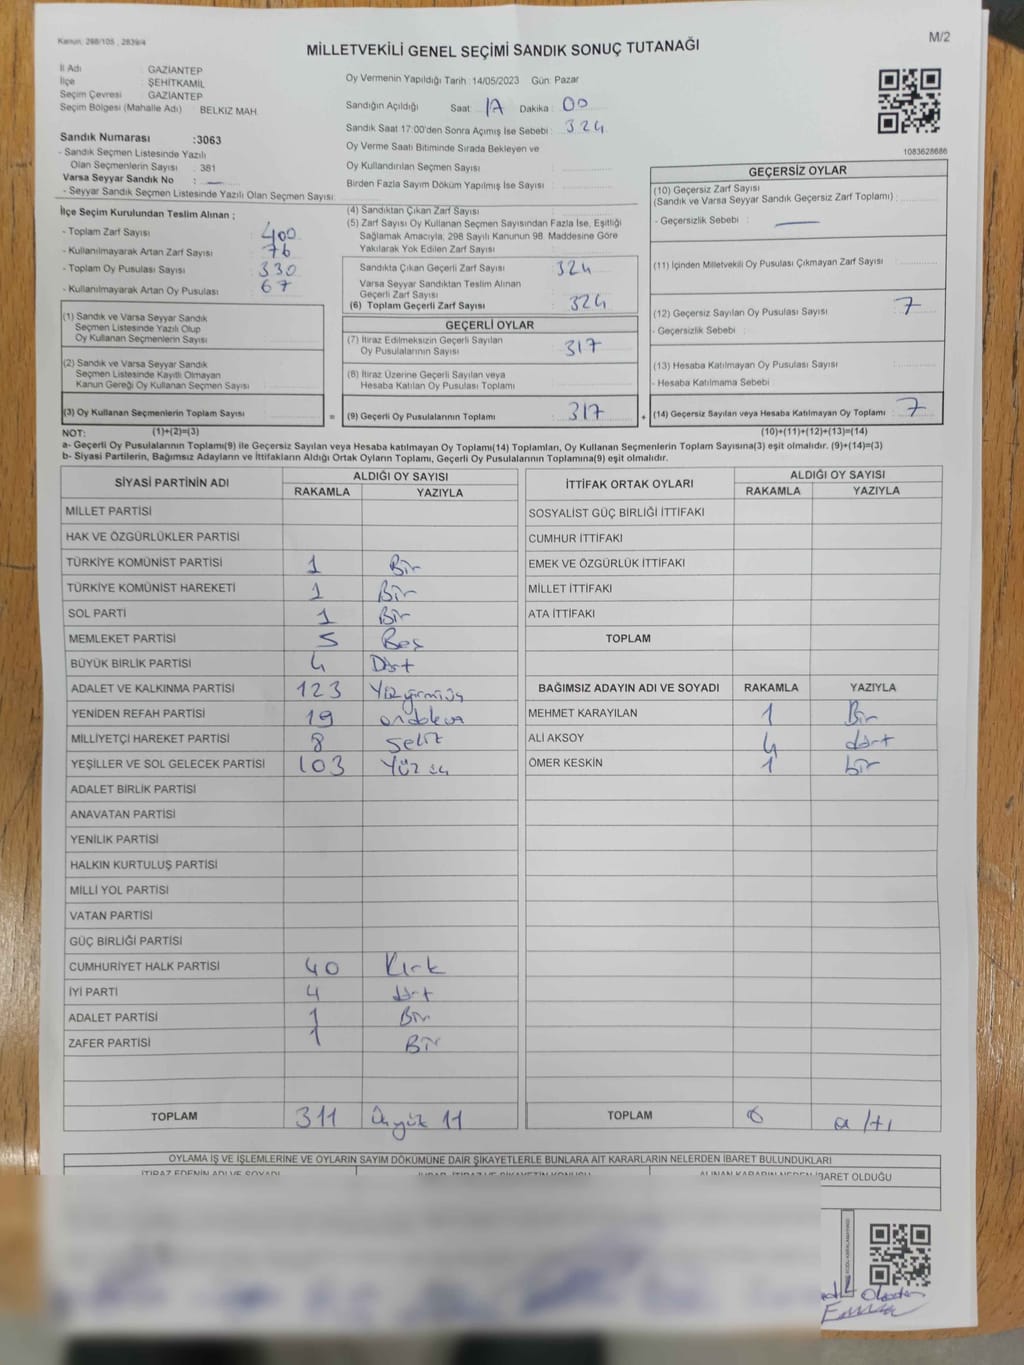 Kanun: 298/105 , 2839/4
MİLLETVEKİLİ GENEL SEÇİMİ SANDIK SONUÇ TUTANAĞI
M/2
İl Adı : GAZİANTEP
İlçe : ŞEHİTKAMİL
Seçim Çevresi : GAZİANTEP
Seçim Bölgesi (Mahalle Adı) : BELKIZ MAH.
Sandık Numarası :3063
- Sandık Seçmen Listesinde Yazılı
Olan Seçmenlerin Sayısı : 381
Varsa Seyyar Sandık No : —
- Seyyar Sandık Seçmen Listesinde Yazılı Olan Seçmen Sayısı:
Oy Vermenin Yapıldığı Tarih :14/05/2023 Gün: Pazar
Sandığın Açıldığı Saat: 17 Dakika : 00
Sandık Saat 17:00'den Sonra Açımış İse Sebebi : 324
Oy Verme Saati Bitiminde Sırada Bekleyen ve
Oy Kullandırılan Seçmen Sayısı :
Birden Fazla Sayım Döküm Yapılmış İse Sayısı :
1083628686
İlçe Seçim Kurulundan Teslim Alınan ;
- Toplam Zarf Sayısı : 400
- Kullanılmayarak Artan Zarf Sayısı : 76
- Toplam Oy Pusulası Sayısı : 330
- Kullanılmayarak Artan Oy Pusulası : 67
(1) Sandık ve Varsa Seyyar Sandık
Seçmen Listesinde Yazılı Olup
Oy Kullanan Seçmenlerin Sayısı
(2) Sandık ve Varsa Seyyar Sandık
Seçmen Listesinde Kayıtlı Olmayan
Kanun Gereği Oy Kullanan Seçmen Sayısı
(3) Oy Kullanan Seçmenlerin Toplam Sayısı
(1)+(2)=(3)
(4) Sandıktan Çıkan Zarf Sayısı
(5) Zarf Sayısı Oy Kullanan Seçmen Sayısından Fazla İse, Eşitliği
Sağlamak Amacıyla, 298 Sayılı Kanunun 98. Maddesine Göre
Yakılarak Yok Edilen Zarf Sayısı
Sandıkta Çıkan Geçerli Zarf Sayısı 324
Varsa Seyyar Sandıktan Teslim Alınan
Geçerli Zarf Sayısı
(6) Toplam Geçerli Zarf Sayısı 324
GEÇERLİ OYLAR
(7) İtiraz Edilmeksizin Geçerli Sayılan
Oy Pusulalarının Sayısı 317
(8) İtiraz Üzerine Geçerli Sayılan veya
Hesaba Katılan Oy Pusulası Toplamı
= (9) Geçerli Oy Pusulalarının Toplamı 317
GEÇERSİZ OYLAR
(10) Geçersiz Zarf Sayısı
(Sandık ve Varsa Seyyar Sandık Geçersiz Zarf Toplamı) :
- Geçersizlik Sebebi : —
(11) İçinden Milletvekili Oy Pusulası Çıkmayan Zarf Sayısı
(12) Geçersiz Sayılan Oy Pusulası Sayısı 7
- Geçersizlik Sebebi :
(13) Hesaba Katılmayan Oy Pusulası Sayısı
- Hesaba Katılmama Sebebi
+ (14) Geçersiz Sayılan veya Hesaba Katılmayan Oy Toplamı 7
(10)+(11)+(12)+(13)=(14)
NOT:
a- Geçerli Oy Pusulalarının Toplamı(9) ile Geçersiz Sayılan veya Hesaba katılmayan Oy Toplamı(14) Toplamları, Oy Kullanan Seçmenlerin Toplam Sayısına(3) eşit olmalıdır. (9)+(14)=(3)
b- Siyasi Partilerin, Bağımsız Adayların ve İttifakların Aldığı Ortak Oyların Toplamı, Geçerli Oy Pusulalarının Toplamına(9) eşit olmalıdır.
SİYASİ PARTİNİN ADI ALDIĞI OY SAYISI
RAKAMLA YAZIYLA
MİLLET PARTİSİ
HAK VE ÖZGÜRLÜKLER PARTİSİ
TÜRKİYE KOMÜNİST PARTİSİ 1 Bir
TÜRKİYE KOMÜNİST HAREKETİ 1 Bir
SOL PARTİ 1 Bir
MEMLEKET PARTİSİ 5 Beş
BÜYÜK BİRLİK PARTİSİ 4 Dört
ADALET VE KALKINMA PARTİSİ 123
YENİDEN REFAH PARTİSİ 19
MİLLİYETÇİ HAREKET PARTİSİ 8 sekiz
YEŞİLLER VE SOL GELECEK PARTİSİ 103 Yüz üç
ADALET BİRLİK PARTİSİ
ANAVATAN PARTİSİ
YENİLİK PARTİSİ
HALKIN KURTULUŞ PARTİSİ
MİLLİ YOL PARTİSİ
VATAN PARTİSİ
GÜÇ BİRLİĞİ PARTİSİ
CUMHURİYET HALK PARTİSİ 40 Kırk
İYİ PARTİ 4 dört
ADALET PARTİSİ 1 Bir
ZAFER PARTİSİ 1 Bir
TOPLAM 311 Üçyüz 11
İTTİFAK ORTAK OYLARI ALDIĞI OY SAYISI
RAKAMLA YAZIYLA
SOSYALİST GÜÇ BİRLİĞİ İTTİFAKI
CUMHUR İTTİFAKI
EMEK VE ÖZGÜRLÜK İTTİFAKI
MİLLET İTTİFAKI
ATA İTTİFAKI
TOPLAM
BAĞIMSIZ ADAYIN ADI VE SOYADI RAKAMLA YAZIYLA
MEHMET KARAYILAN 1 Bir
ALİ AKSOY 4 dört
ÖMER KESKİN 1 bir
TOPLAM 6 altı
OYLAMA İŞ VE İŞLEMLERİNE VE OYLARIN SAYIM DÖKÜMÜNE DAİR ŞİKAYETLERLE BUNLARA AİT KARARLARIN NELERDEN İBARET BULUNDUKLARI
İTİRAZ EDENİN ADI VE SOYADI
ALINAN KARARIN NEDEN İBARET OLDUĞU